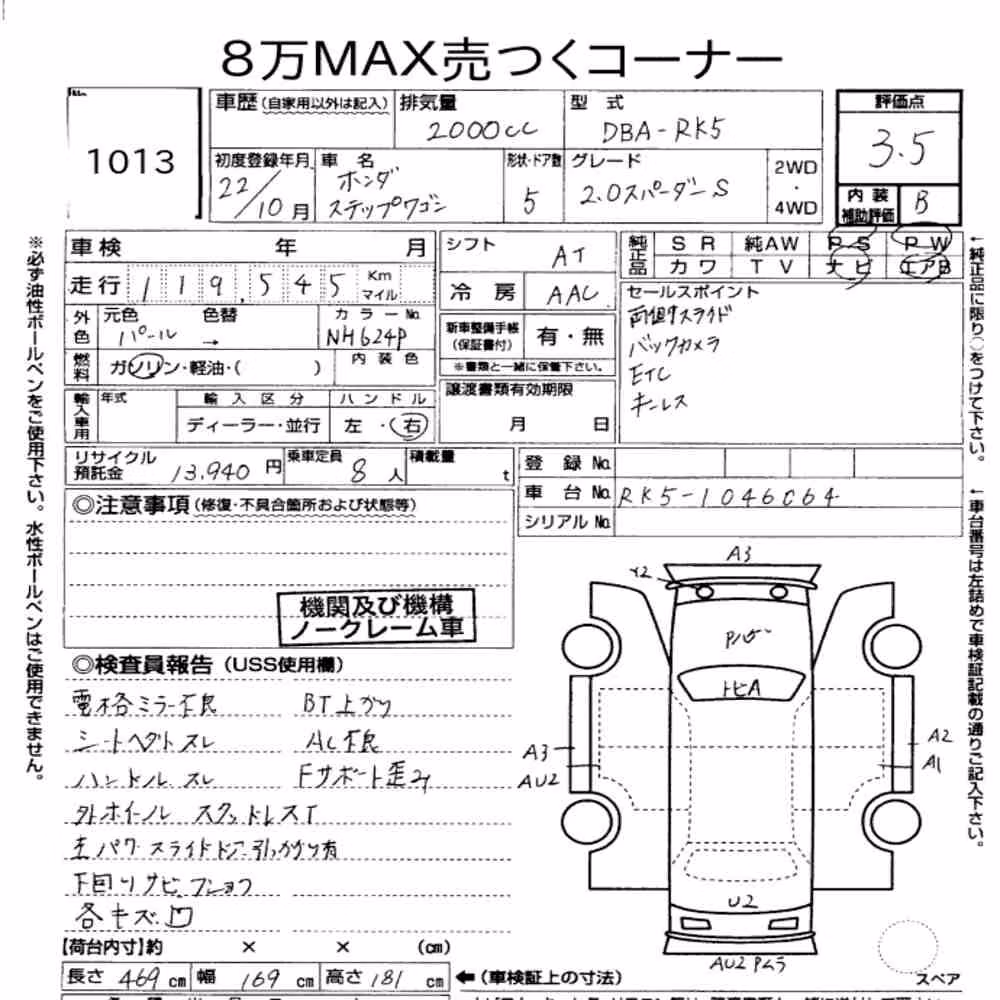 8万MAX売つくコーナー
1013
車歴(自家用以外は記入) 排気量 型式 評価点
2000cc DBA-RK5 3.5
初度登録年月 車名 形状・ドア数 グレード 2WD・4WD 内装補助評価 B
22/10月 ホンダ ステップワゴン 5 2.0スパーダーS
車検 年 月
シフト AT
純正品 SR 純AW PS PW
カワ TV ナビ エアB
走行 119,545 Km マイル
冷房 AAC
セールスポイント
両側Pスライド
バックカメラ
ETC
キーレス
外色 元色 色替 カラーNo.
パール → NH624P
新車整備手帳(保証書付) 有・無
※書類と一緒に保管下さい。
燃料 ガソリン・軽油・( ) 内装色
譲渡書類有効期限
月 日
輸入車用 年式 輸入区分 ハンドル
ディーラー・並行 左・右
リサイクル預託金 13,940円 乗車定員 8人 積載量 t
登録No.
車台No. RK5-1046064
シリアルNo.
◎注意事項(修復・不具合箇所および状態等)
機関及び機構
ノークレーム車
◎検査員報告(USS使用欄)
電格ミラー不良 BT上がり
シートヘタトスレ AC不良
ハンドルスレ Fサポート歪み
外ホイール スタッドレスT
左パワースライドドア引っかかり有
下回りサビ フショク
各キズ凹
【荷台内寸】約 × × (cm)
長さ 469cm 幅 169cm 高さ 181cm ←(車検証上の寸法)
A3
Y2
トビA
A3
AU2
A2
A1
U2
AU2 Pムラ
スペア
※必ず油性ボールペンをご使用下さい。水性ボールペンはご使用できません。
←純正品に限り○をつけて下さい。
←車台番号は左詰めで車検証記載の通りご記入下さい。